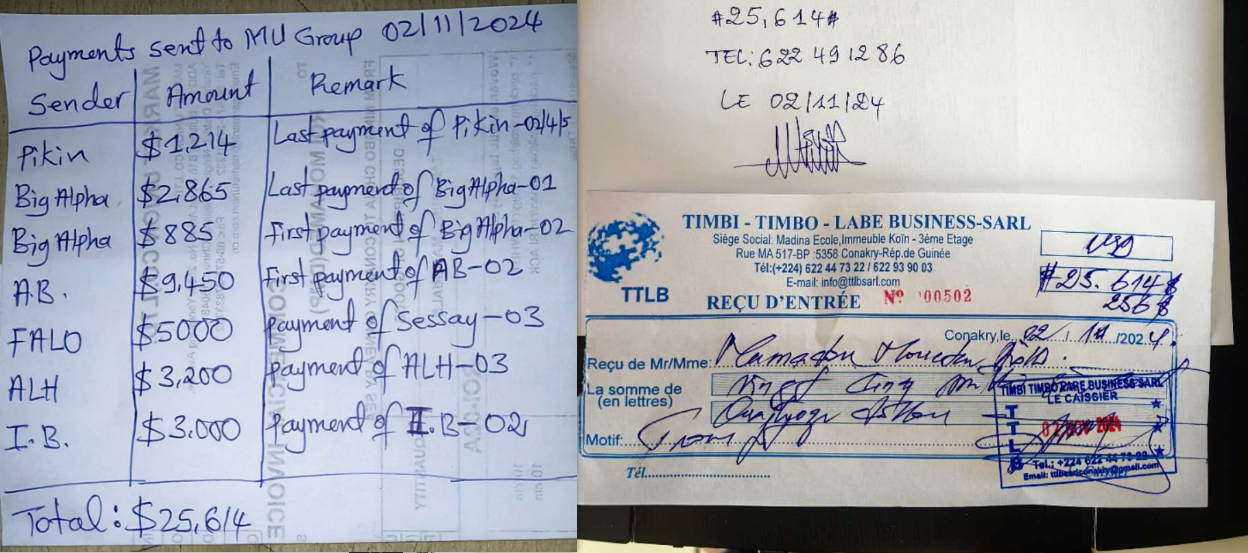 Payments sent to MU Group 02/11/2024
Sender Amount Remark
Pikin $1,214 Last payment of Pikin-02/4/5
Big Alpha $2,865 Last payment of Big Alpha-01
Big Alpha $885 First payment of Big Alpha-02
A.B. $9,450 First payment of AB-02
FALO $5000 payment of Sessay-03
ALH $3,200 payment of ALH-03
I.B. $3.000 payment of I.B-02
Total: $25,614
#25,614#
TEL: 622 49 12 86
LE 02/11/24
TIMBI - TIMBO - LABE BUSINESS-SARL
Siège Social: Madina Ecole,Immeuble Koïn - 3ème Etage
Rue MA 517-BP :5358 Conakry-Rép.de Guinée
Tél:(+224) 622 44 73 22 / 622 93 90 03
E-mail: info@ttlbsarl.com
TTLB
REÇU D'ENTRÉE Nº 000502
#25.614$
256$
Conakry,le, 02 / 11 /2024.
Reçu de Mr/Mme: Mamadou
La somme de
(en lettres)
Motif:
Tél
TIMBI TIMBO LABE BUSINESS SARL
LE CAISSIER
TTLB
02 NOV 2024
Tel.: +224 622 44 73 22
Email: ttlbsarlconakry@gmail.com